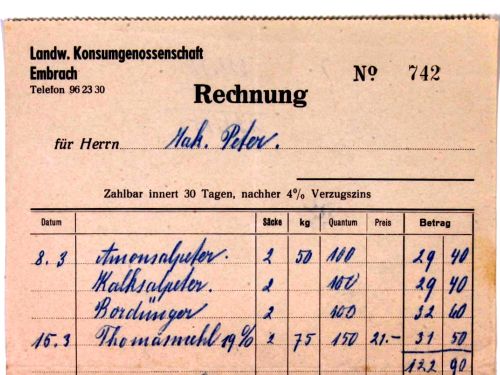 Landw. Konsumgenossenschaft
Embrach
Telefon 96 23 30
Nº 742
Rechnung
für Herrn Jak. Peter.
Zahlbar innert 30 Tagen, nachher 4% Verzugszins
Datum Säcke kg Quantum Preis Betrag
8. 3 Amonsalpeter. 2 50 100 29 40
Kalksalpeter. 2 100 29 40
Bordünger 2 100 32 60
15. 3 Thomasmehl 19% 2 75 150 21.- 31 50
122 90